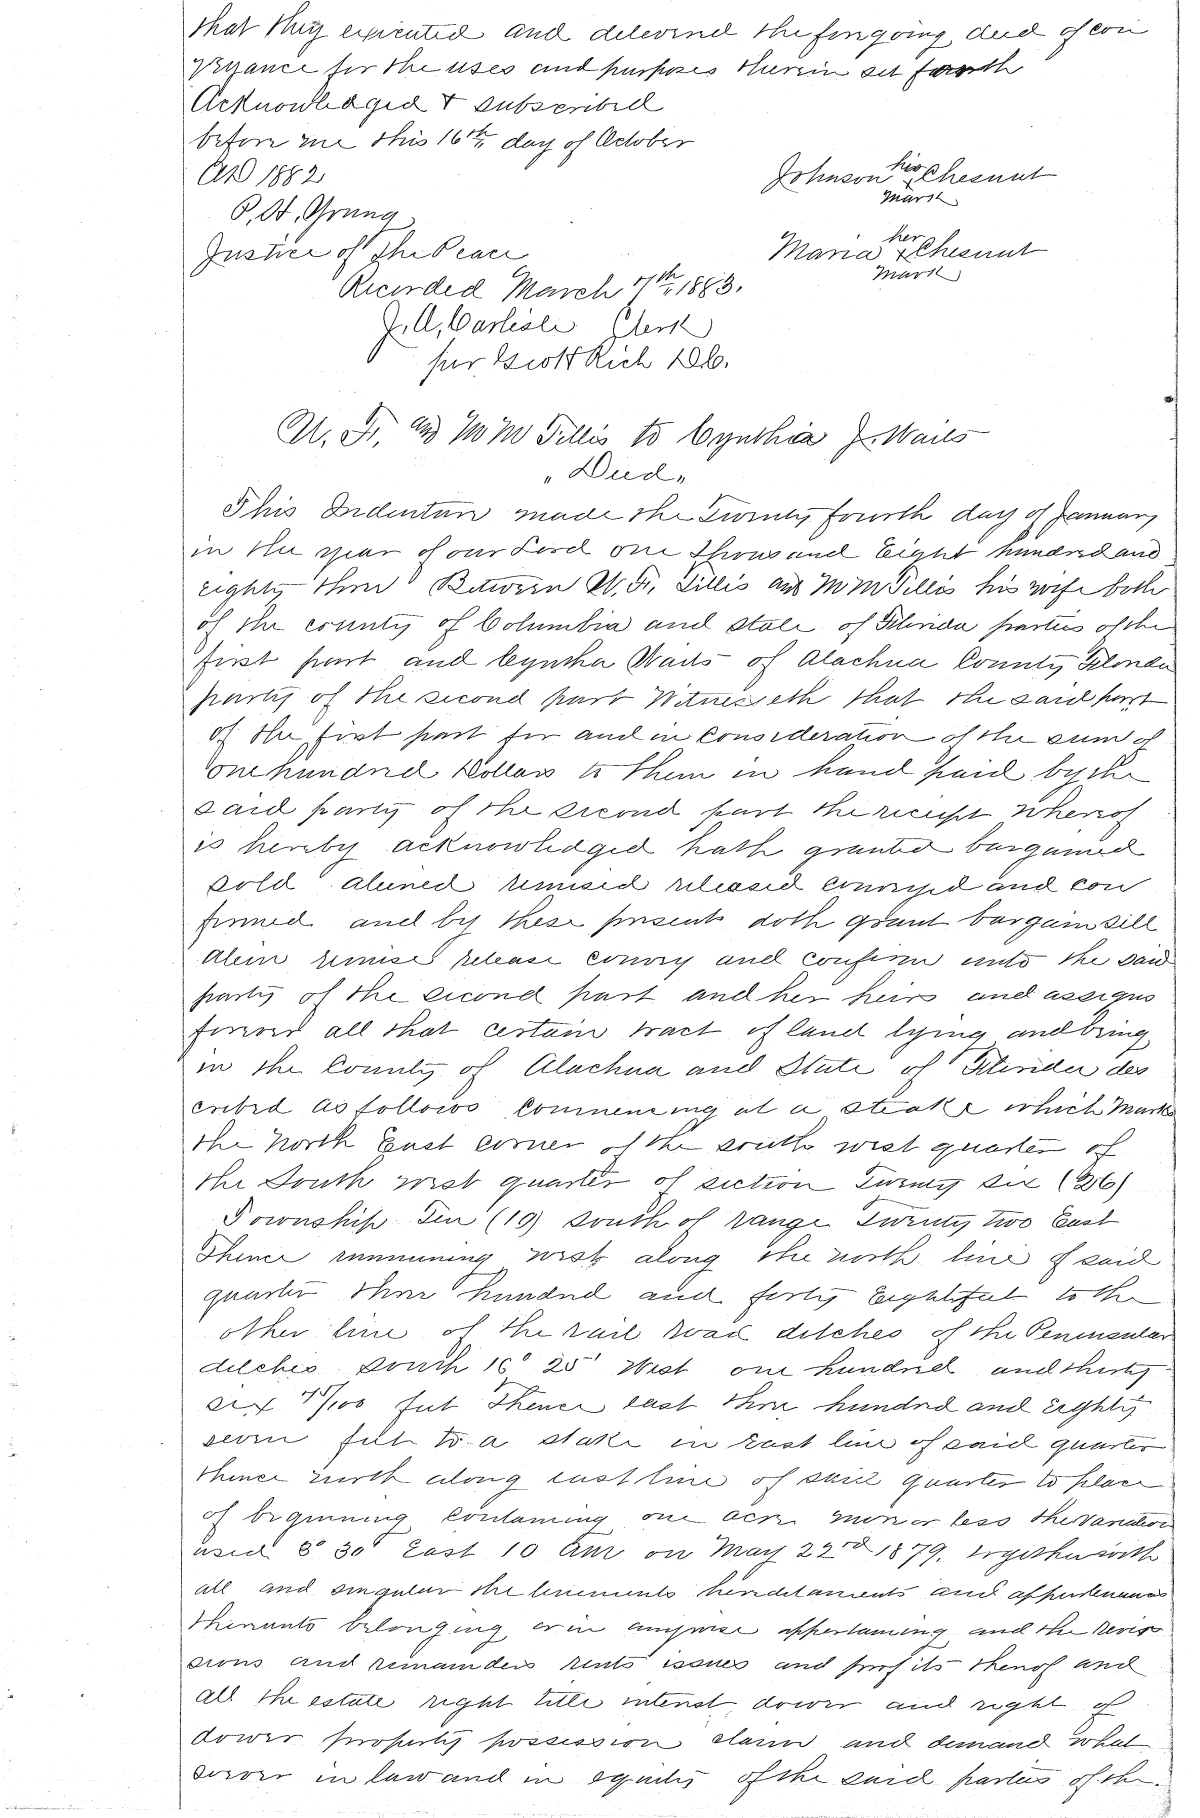 that they executed and delivered the foregoing deed of con
veyance for the uses and purposes therein set forth
Acknowledged & subscribed
before me this 16th day of October
AD 1882
Johnson his x mark Chesnut
Justice of the Peace
Maria her x mark Chesnut
Recorded March 7th 1883.
J. A. Carlisle Clerk
per Scott Rich D.C.
W. F. and M M Tillis to Cynthia J. Wails
"Deed"
This Indenture made the Twenty fourth day of January
in the year of our Lord one thousand Eight hundred and
eighty three Between W. F. Tillis and M M Tillis his wife both
of the county of Columbia and state of Florida parties of the
first part and Cyntha Wails of Alachua County Florida
party of the second part Witnesseth that the said part
of the first part for and in consideration of the sum of
one hundred Dollars to them in hand paid by the
said party of the second part the receipt whereof
is hereby acknowledged hath granted bargained
sold aliened remised released conveyed and con
firmed and by these presents doth grant bargain sell
alien remise release convey and confirm unto the said
party of the second part and her heirs and assigns
forever all that certain tract of land lying and being
in the County of Alachua and State of Florida des
cribed as follows commencing at a steake which Marks
the North East corner of the south west quarter of
the South west quarter of section Twenty six (26)
Township Ten (10) south of range Twenty two East
Thence running west along the north line of said
quarter three hundred and forty Eight feet to the
other line of the rail road ditches of the Peninsular
ditches south 16° 25' West one hundred and thirty
six /100 feet Thence east three hundred and Eighty
seven feet to a stake in East line of said quarter
thence north along east line of said quarter to place
of beginning containing one acre more or less the variation
used 3° 30' East 10 on May 22nd 1879. together with
all and singular the tenements hereditaments and appurtenances
thereunto belonging or in anywise appertaining and the rever
sions and remainders rents issues and profits thereof and
all the estate right title interest dower and right of
dower property possession claim and demand what
soever in law and in equity of the said parties of the